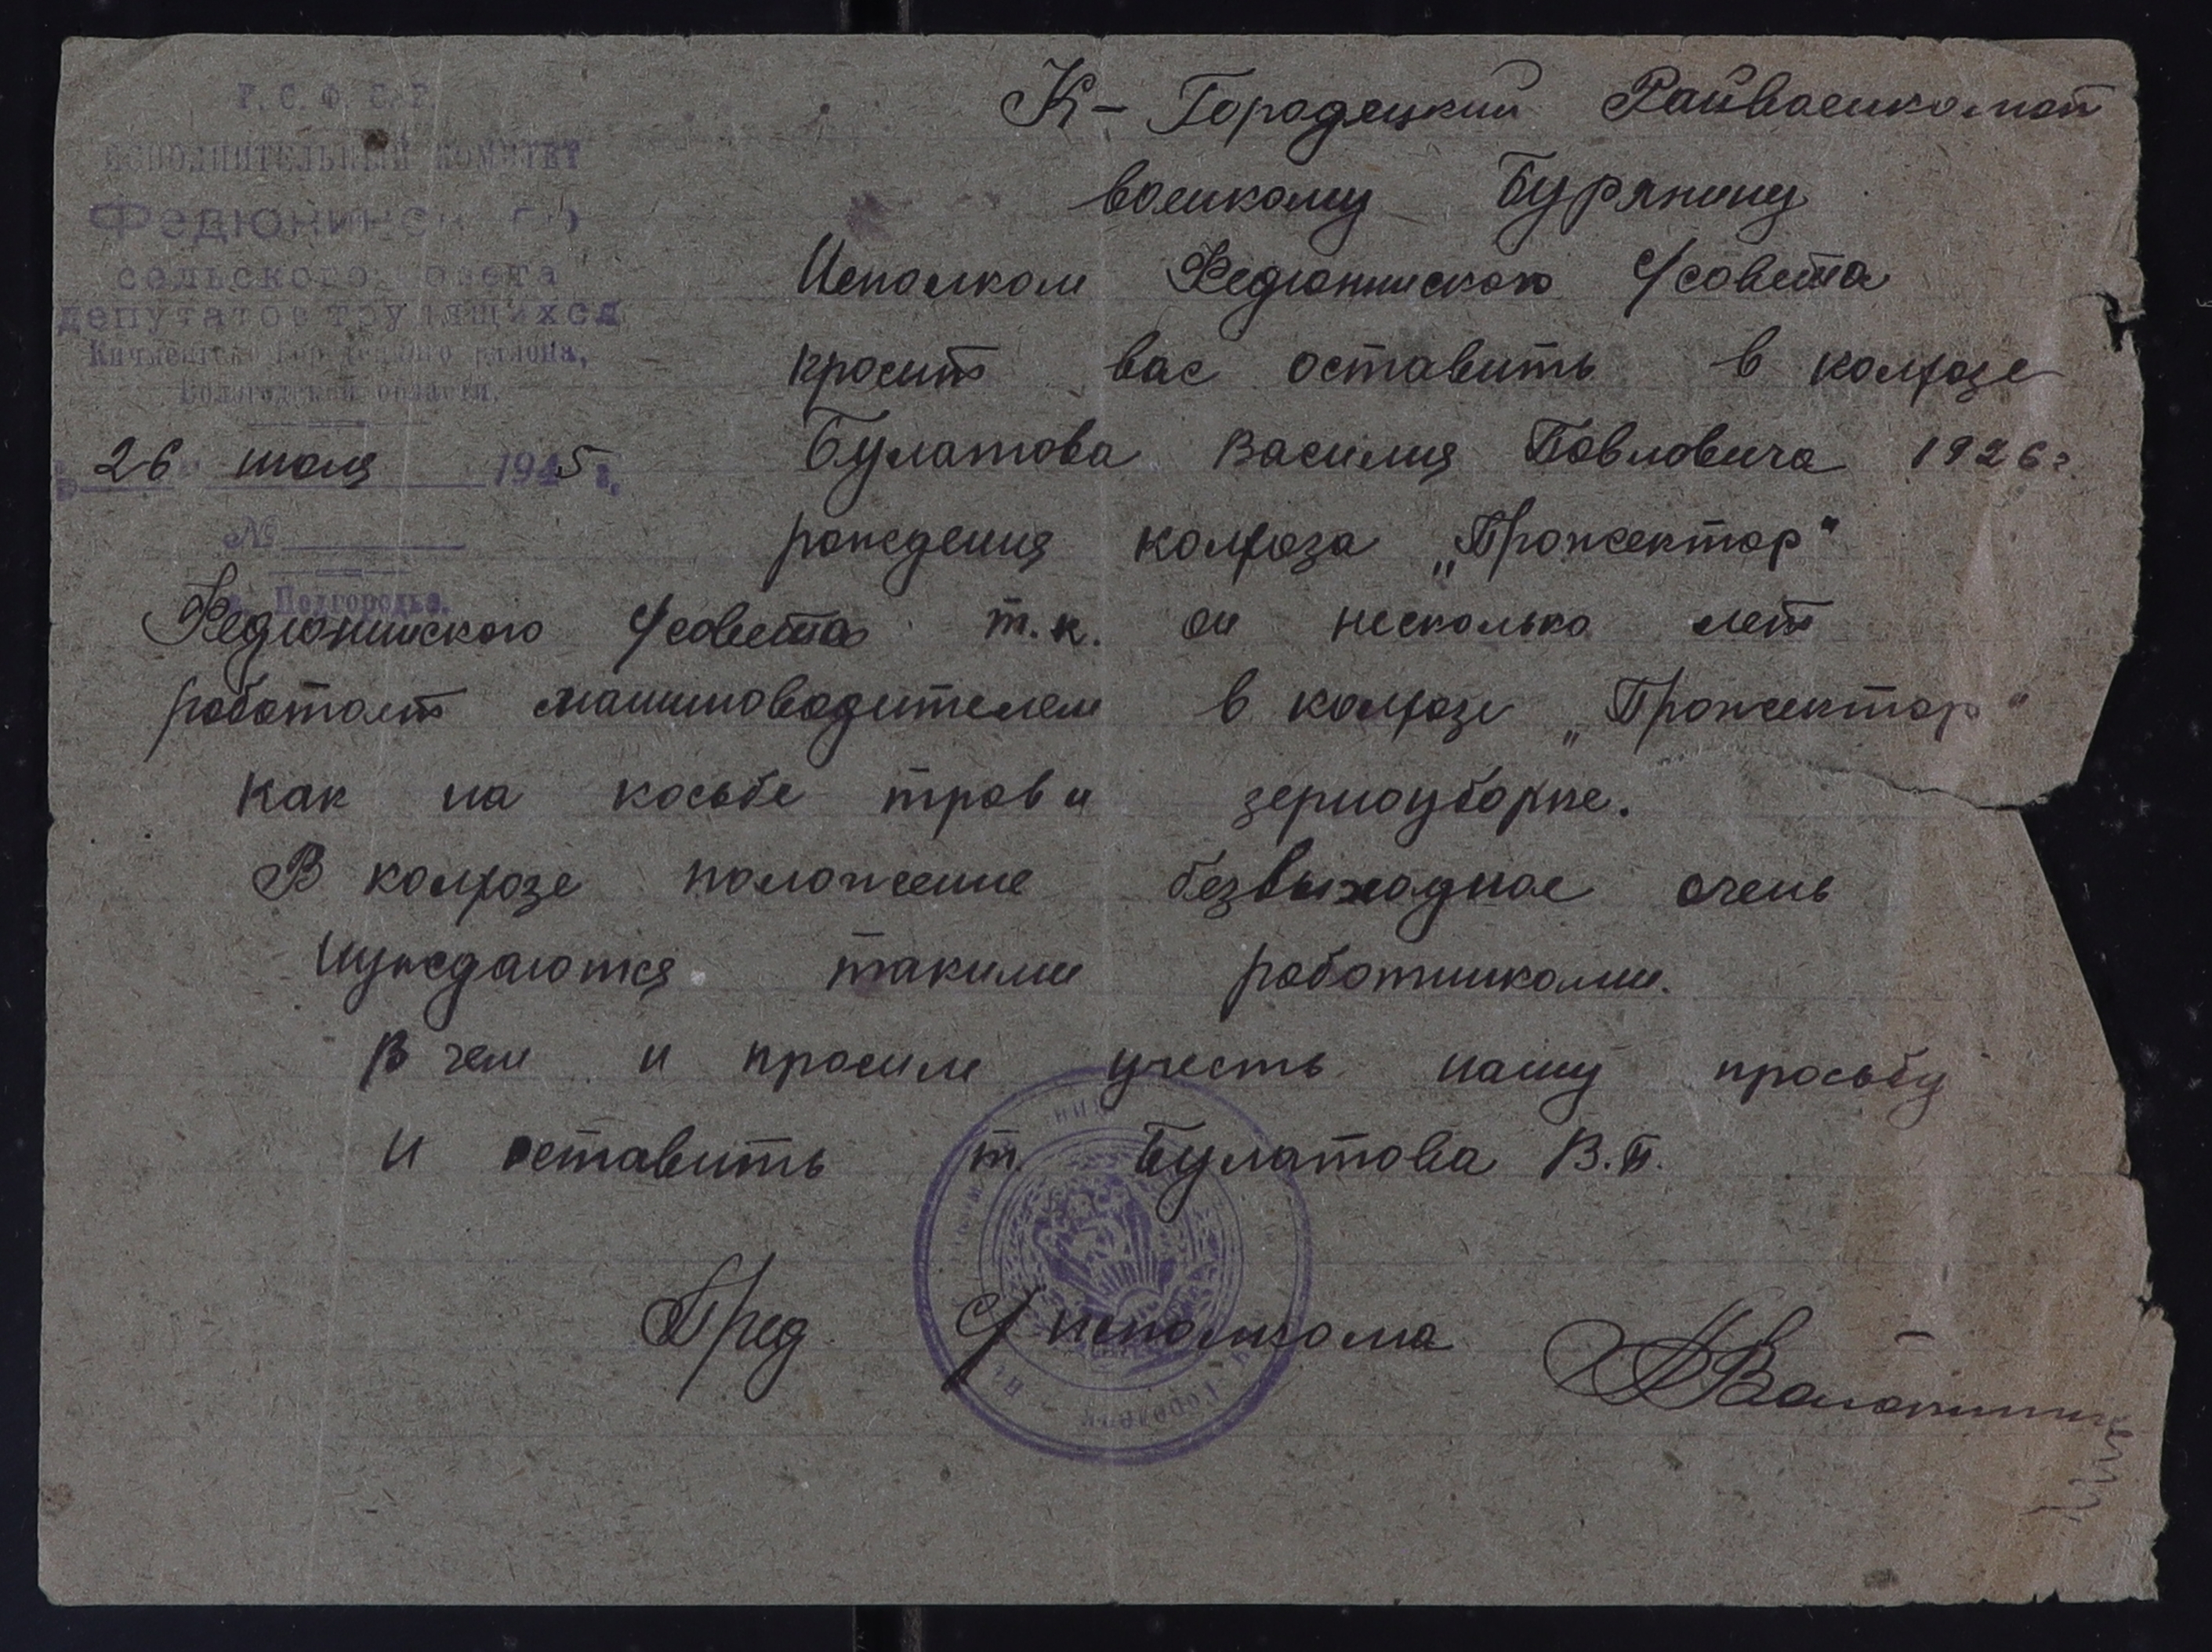 Р. С. Ф. С. Р.
ИСПОЛНИТЕЛЬНЫЙ КОМИТЕТ
Федюнинского
сельского совета
депутатов трудящихся
Кичменгско-Городецкого района,
Вологодской области.
26 июля 1945 г.
№
д. Подгородье.
К-Городецкий Райвоенкомат
военкому Бурянину
Исполком Федюнинского с/совета
просит вас оставить в колхозе
Булатова Василия Павловича 1926 г.
рождения колхоза „Прожектор“
Федюнинского с/совета т.к. он несколько лет
работает машиноводителем в колхозе „Прожектор“
как на косьбе трав и зерноуборке.
В колхозе положение безвыходное очень
нуждаются такими работниками.
В чем и просим учесть нашу просьбу
и оставить т. Булатова В.П.
Пред с/исполкома